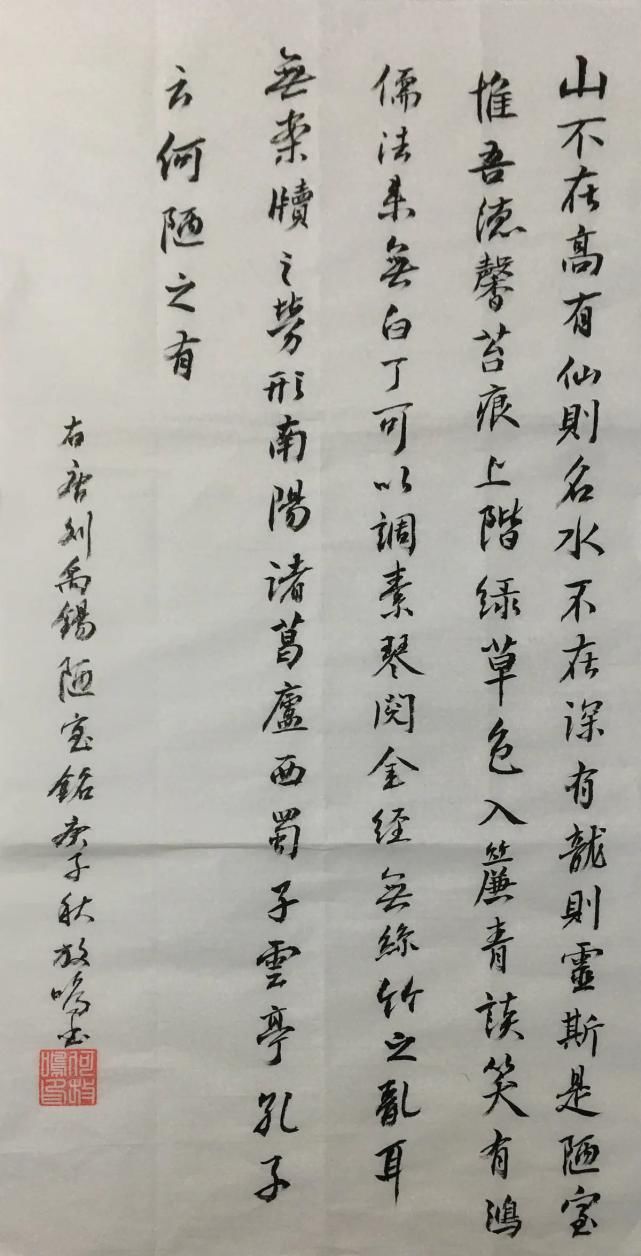 山不在高有仙則名水不在深有龍則靈斯是陋室
惟吾德馨苔痕上階綠草色入簾青談笑有鴻
儒往來無白丁可以調素琴閱金經無絲竹之亂耳
無案牘之勞形南陽諸葛廬西蜀子雲亭孔子
云何陋之有
右唐刘禹錫陋室銘庚子秋放鳴书
何放鳴印